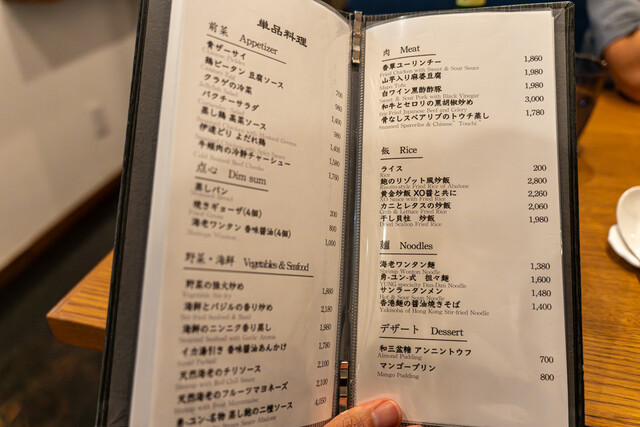 単品料理
前菜 Appetizer
青ザーサイ
鶏ピータン 豆腐ソース
クラゲの冷菜
パクチーサラダ
蒸し鶏 葱菜ソース
伊達どり よだれ鶏
牛頬肉の冷鮮チャーシュー
点心 Dim sum
蒸しパン 200
焼きギョーザ(4個) 800
海老ワンタン 香味醤油(4個) 1,000
野菜・海鮮 Vegetables & Seafood
野菜の強火炒め 1,880
海鮮とバジルの香り炒め 2,180
海鮮のニンニク香り蒸し 1,980
イカ湯引き 香味醤油あんかけ 1,780
天然海老のチリソース 2,100
天然海老のフルーツマヨネーズ 2,100
勇-ユン-名物 蒸し鮑の二種ソース 4,050
肉 Meat
香草ユーリンチー 1,860
Fried Chicken with Sweet & Sour Sauce
山芋入り麻婆豆腐 1,980
Mapo Tofu
白ワイン黒酢酢豚 1,980
Sweet & Sour Pork with Black Vinegar
和牛とセロリの黒胡椒炒め 3,000
Stir Fried Japanese Beef and Celery
骨なしスペアリブのトウチ蒸し 1,780
Steamed Spareribs & Chinese "Touchi"
飯 Rice
ライス 200
Rice
鮑のリゾット風炒飯 2,800
Risotto-style Fried Rice of Abalone
黄金炒飯 XO醤と共に 2,260
XO Sauce with Fried Rice
カニとレタスの炒飯 2,060
Crab & Lettuce Fried Rice
干し貝柱 炒飯 1,980
Dried Scallop Fried Rice
麺 Noodles
海老ワンタン麺 1,380
Shrimp Wonton Noodle
勇-ユン-式 担々麺 1,600
YUNG specialty Dan-Dan Noodle
サンラータンメン 1,480
Hot & Sour Soup Noodle
香港麺の醤油焼きそば 1,400
Yakisoba of Hong Kong Stir-fried Noodle
デザート Dessert
和三盆糖 アンニントウフ 700
Almond Pudding
マンゴープリン 800
Mango Pudding